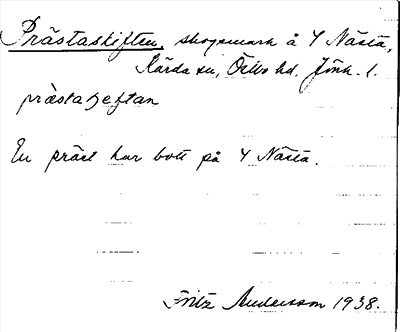 Prästaskiften, skogsmark å Y Nästa,
Kärda sn, Östbo hd. Jönk. l.
prästaʃeftan
En präst har bott på Y Nästa.
Fritz Andersson 1938.